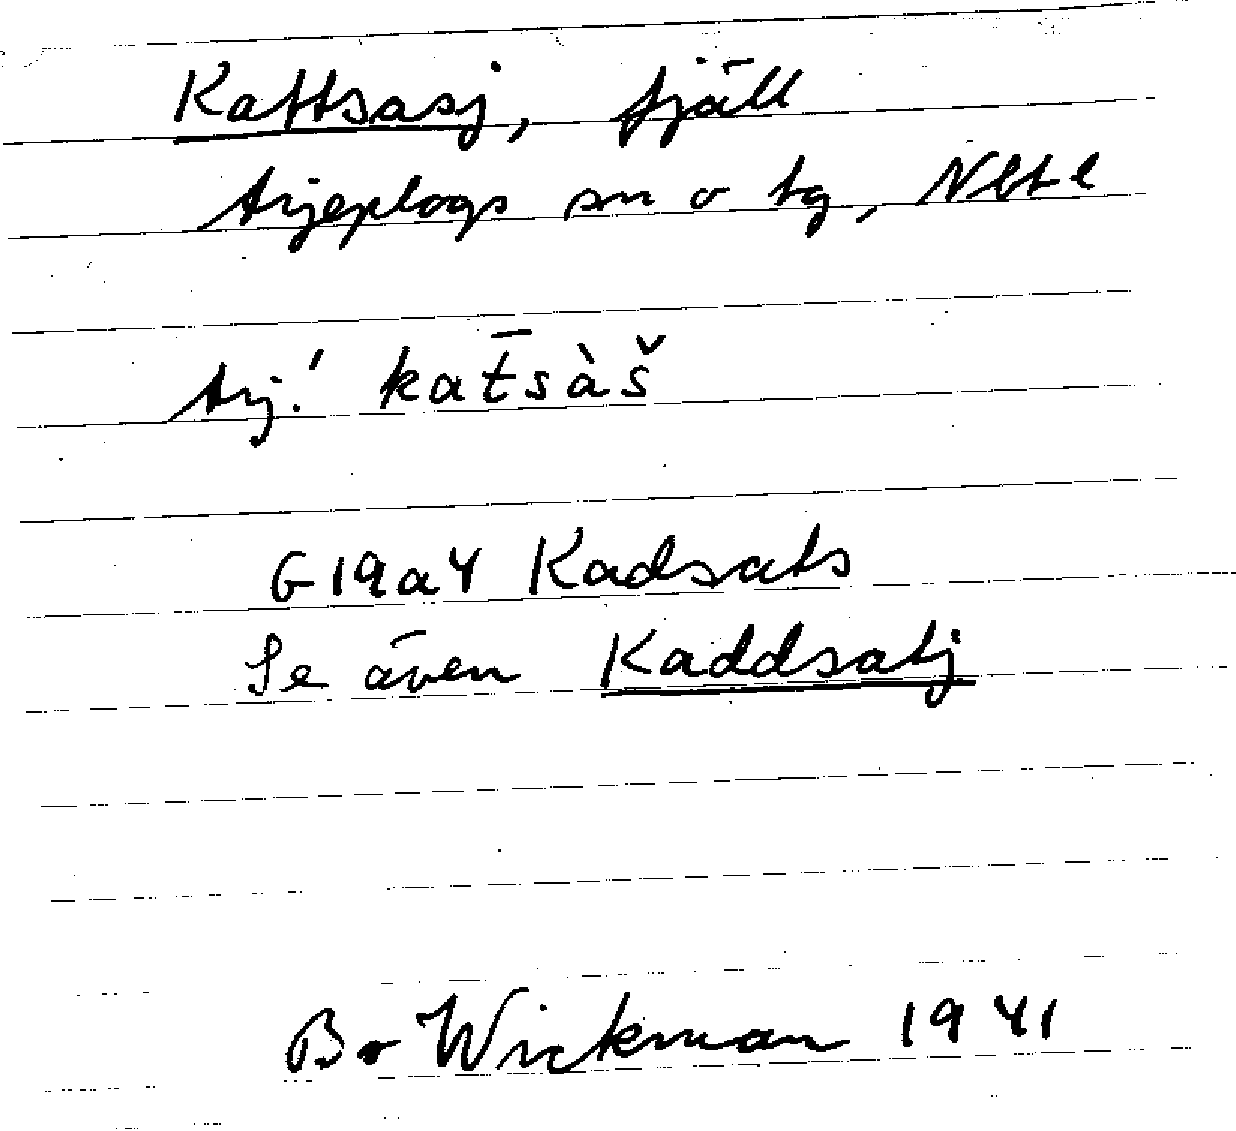 Kattsasj, fjäll
Arjeplogs sn o tg, Nbtl
Arj.! kat̄sàš
G19a4 Kadsats
Se även Kaddsatj
Bo Wickman 1941